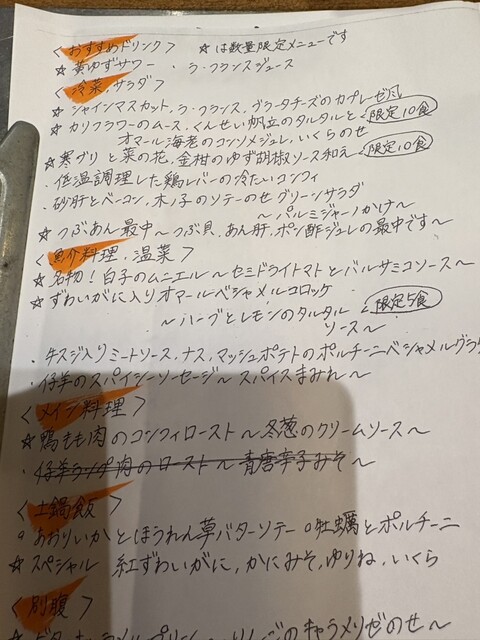 〈おすすめドリンク〉 ☆は数量限定メニューです
☆黄ゆずサワー ・ラ・フランスジュース
〈冷菜、サラダ〉
☆シャインマスカット、ラ・フランス、ブラータチーズのカプレーゼ風
☆カリフラワーのムース、くんせい帆立のタルタルと 限定10食
オマール海老のコンソメジュレ、いくらのせ
☆寒ブリと菜の花、金柑のゆず胡椒ソース和え 限定10食
・低温調理した鶏レバーの冷たいコンフィ
・砂肝とベーコン、木ノ子のソテーのせグリーンサラダ
～パルミジャーノかけ～
☆つぶあん最中～つぶ貝、あん肝、ポン酢ジュレの最中です～
〈魚介料理、温菜〉
☆名物!白子のムニエル～セミドライトマトとバルサミコソース～
☆ずわいがに入りオマールベシャメルコロッケ 限定5食
～ハーブとレモンのタルタル
ソース～
・牛スジ入りミートソース、ナス、マッシュポテトのポルチーニベシャメルグラ
・仔羊のスパイシーソーセージ～スパイスまみれ～
〈メイン料理〉
☆鴨もも肉のコンフィロースト～冬葱のクリームソース～
・仔羊ランプ肉のロースト～青唐辛子みそ～
〈土鍋飯〉
○あおりいかとほうれん草バターソテー ○牡蠣とポルチーニ
☆スペシャル 紅ずわいがに、かにみそ、ゆりね、いくら
〈別腹〉
のキャラメリゼのせ～